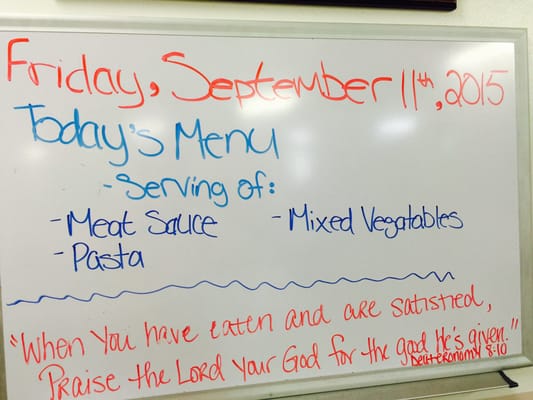 Friday, September 11th, 2015
Today's Menu
- Serving of:
- Meat Sauce - Mixed Vegatables
- Pasta
"When You have eaten and are satisfied,
Praise the Lord Your God for the good He's given."
Deuteronomy 8:10